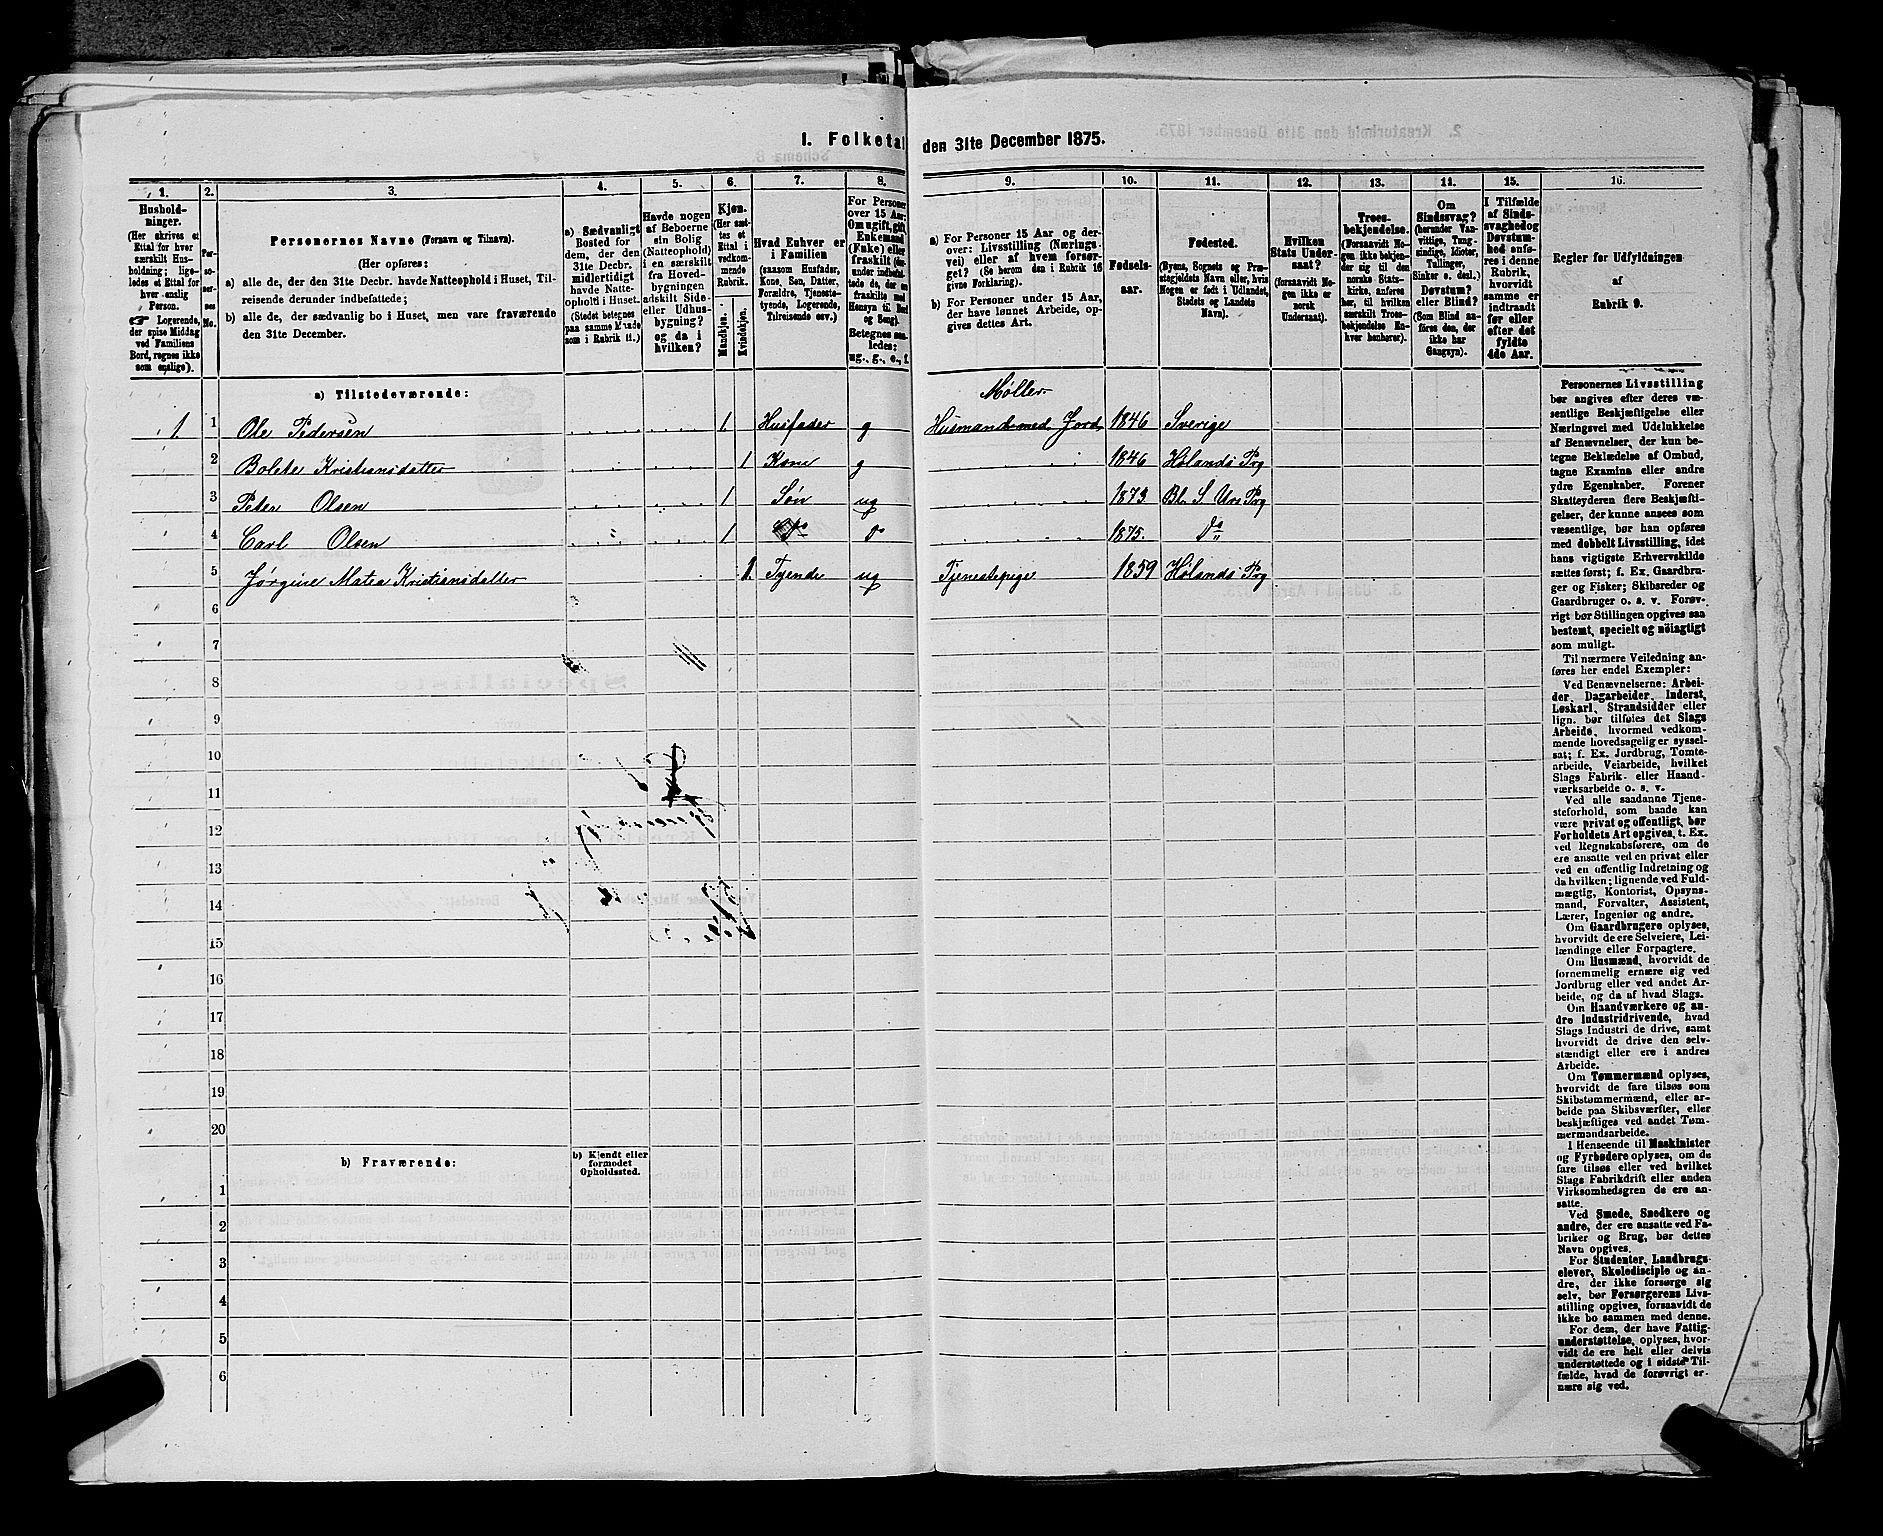 1. Folketal den 31te December 1875.
1. 2. 3. 4. 5. 6. 7. 8. 9. 10. 11. 12. 13. 14. 15. 16.
Hushold-
ninger.
(Her skrives et
Ettal for hver
særskilt Hus-
holdning; lige-
ledes et Ettal for
hver enslig
Person.
☞ Logerende,
der spise Middag
ved Familiens
Bord, regnes ikke
som enslige).
Per-
so-
ner-
nes
No.
Personernes Navne (Fornavn og Tilnavn).
(Her opføres:
a) alle de, der den 31te Decbr. havde Natteophold i Huset, Til-
reisende derunder indbefattede;
b) alle de, der sædvanlig bo i Huset, men vare fraværende
den 31te December.
a) Sædvanligt
Bosted for
dem, der den
31te Decbr.
midlertidigt
havde Natte-
ophold i Huset.
(Stedet betegnes
paa samme Maade
som i Rubrik 11.)
Havde nogen
af Beboerne
sin Bolig
(Natteophold)
i en særskilt
fra Hoved-
bygningen
adskilt Side-
eller Udhus-
bygning?
og da i
hvilken?
Kjøn.
(Her sæt-
tes et
Ettal i
vedkom-
mende
Rubrik.
Mandkjøn.
Kvindekjøn.
Hvad Enhver er
i Familien
(saasom Husfader,
Kone, Søn, Datter,
Forældre, Tjeneste-
tyende, Logerende,
Tilreisende osv.)
For Personer
over 15 Aar:
Om ugift, gift,
Enkemand
(Enke) eller
fraskilt (der-
under indbefat-
tede de, der ere
fraskilte med
Hensyn til Bord
og Seng).
Betegnes saa-
ledes:
ug., g., e., f.
a) For Personer 15 Aar og der-
over: Livsstilling (Nærings-
vei) eller af hvem forsør-
get? (Se herom den i Rubrik 16
givne Forklaring).
b) For Personer under 15 Aar,
der have lønnet Arbeide, op-
gives dettes Art.
Fødsels-
aar.
Fødested.
(Byens, Sognets og Præ-
stegjeldets Navn eller, hvis
Nogen er født i Udlandet,
Stedets og Landets
Navn).
Hvilken
Stats Under-
saat?
(forsaavidt No-
gen ikke er
norsk
Undersaat).
Troes-
bekjendelse.
(Forsaavidt No-
gen ikke bekjen-
der sig til den
norske Stats-
kirke, anføres
her, til hvilken
særskilt Troes-
bekjendelse En-
hver henhører).
Om
Sindssvag?
(herunder Van-
vittige, Tung-
sindige, Idioter,
Tullinger,
Sinker o. desl.,)
Døvstum?
eller Blind?
(Som Blind an-
føres den, der
ikke har
Gangsyn).
I Tilfælde
af Sinds-
svaghed og
Døvstum-
hed anfø-
res i denne
Rubrik,
hvorvidt
samme er
indtraadt
før eller
efter det
fyldte
4de Aar.
Regler for Udfyldningen
af
Rubrik 9.
a) Tilstedeværende:
Møller
1. 1 Ole Pedersen 1. Husfader g Husmand med Jord 1846 Sverige
2 Bolete Kristiansdatter 1 Kone g 1846 Hølands Prg
3 Peter Olsen 1 Søn ug 1873. Bl. S. Urs Prg
4 Carl Olsen 1 Do Do 1875. Do
5 Jørgine Matea Kristiansdatter 1. Tyende ug Tjenestepige 1859 Hølands Prg
6
7
8
9
10
11
12
13
14
15
16
17
18
19
20
b) Fraværende:
b) Kjendt eller
formodet
Opholdssted.
1
2
3
4
5
6
Personernes Livsstilling
bør angives efter deres væ-
sentlige Beskjæftigelse eller
Næringsvei med Udelukkelse
af Benævnelser, der kun be-
tegne Beklædelse af Ombud,
tagne Examina eller andre
ydre Egenskaber. Forener
Skatteyderen flere Beskjæfti-
gelser, der kunne ansees som
væsentlige, bør han opføres
med dobbelt Livsstilling, idet
hans vigtigste Erhvervskilde
sættes først; f. Ex. Gaardbru-
ger og Fisker; Skibsreder og
Gaardbruger o. s. v. Forøv-
rigt bør Stillingen opgives saa
bestemt, specielt og nöiagtigt
som muligt.
Til nærmere Veiledning an-
føres her endel Exempler:
Ved Benævnelserne: Arbei-
der, Dagarbeider, Inderst,
Løskarl, Strandsidder eller
lign. bør tilføies det Slags
Arbeide, hvormed vedkom-
mende hovedsagelig er syssel-
sat; f. Ex. Jordbrug, Tomte-
arbeide, Veiarbeide, hvilket
Slags Fabrik- eller Haand-
værksarbeide o. s. v.
Ved alle saadanne Tjene-
steforhold, som baade kan
være privat og offentligt, bør
Forholdets Art opgives, t. Ex.
ved Regnskabsførere, om de
ere ansatte ved en privat eller
ved en offentlig Indretning og
da hvilken; lignende ved Fuld-
mægtig, Kontorist, Opsyns-
mand, Forvalter, Assistent,
Lærer, Ingeniør og andre.
Om Gaardbrugere oplyses,
hvorvidt de ere Selveiere, Lei-
lændinge eller Forpagtere.
Om Husmænd, hvorvidt de
fornemmelig ernære sig ved
Jordbrug eller ved andet Ar-
beide, og da af hvad Slags.
Om Haandværkere og an-
dre Industridrivende, hvad
Slags Industri de drive, samt
hvorvidt de drive den selv-
stændigt eller ere i andres
Arbeide.
Om Tømmermænd oplyses,
hvorvidt de fare tilsøs som
Skibstømmermænd, eller ar-
beide paa Skibsværfter, eller
beskjæftiges ved andet Tøm-
mermandsarbeide.
I Henseende til Maskinister
og Fyrbødere oplyses, om de
fare tilsøs eller ved hvilket
Slags Fabrikdrift eller anden
Virksomhedsgren de ere an-
satte.
Ved Smede, Snedkere og
andre, der ere ansatte ved Fa-
briker og Brug, bør dettes
Navn opgives.
For Studenter, Landbrugs-
elever, Skoledisciple og an-
dre, der ikke forsørge sig
selv, bør Forsørgerens Livs-
stilling opgives, forsaavidt de
ikke bo sammen med denne.
For dem, der have Fattig-
understøttelse, oplyses, hvor-
vidt de ere helt eller delvis
understøttede og i sidste Til-
fælde, hvad de forøvrigt er-
nære sig ved.